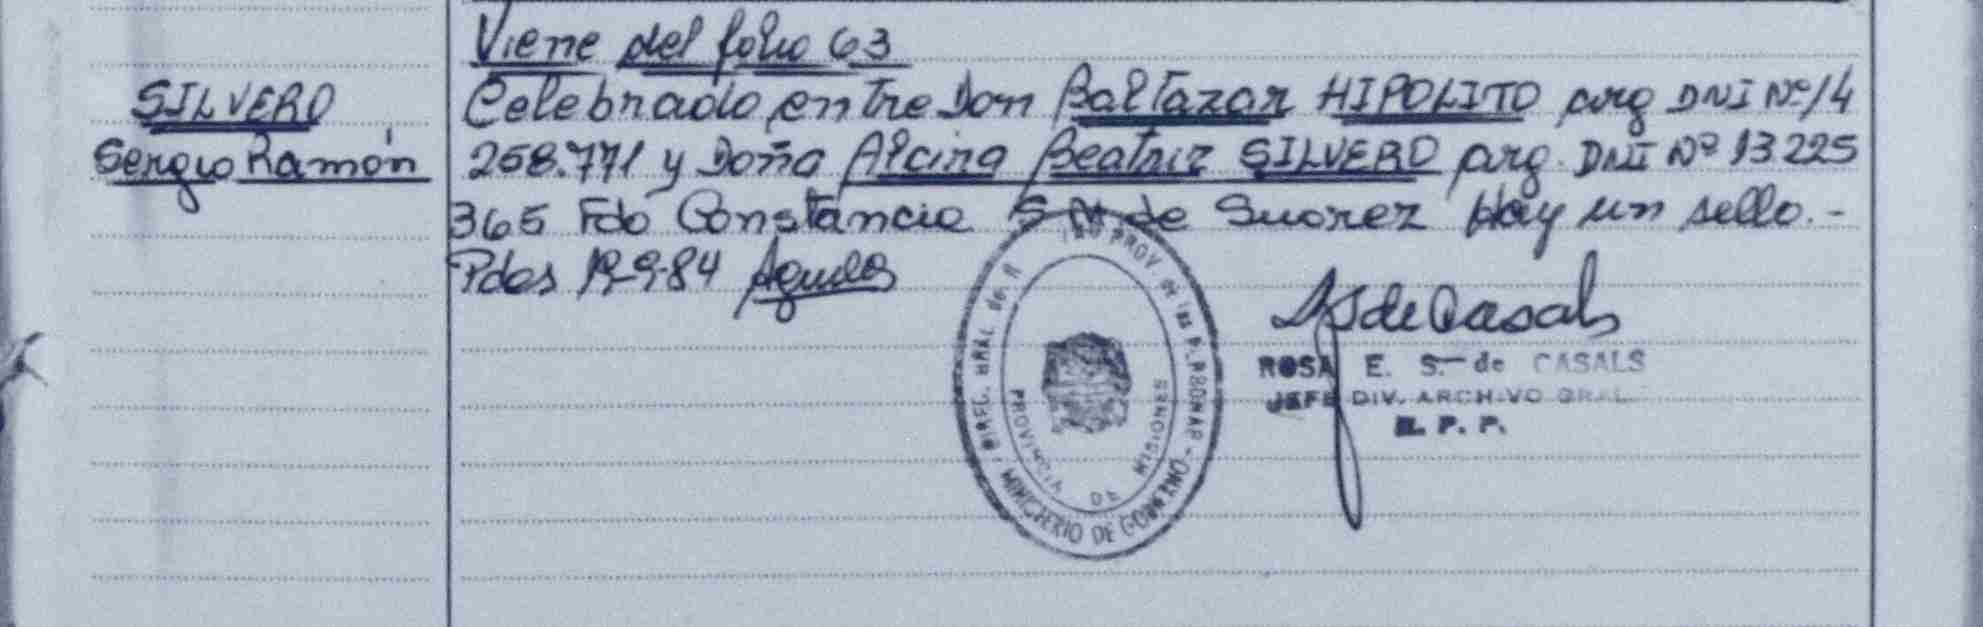 Viene del folio 63
SILVERO
Sergio Ramón
Celebrado entre Don Baltazar HIPOLITO arg DNI Nº 14
258.771 y Doña Alcira Beatriz SILVERO arg. DNI Nº 13 225
365 Fdo Constancia S M de Suarez Hay un sello.-
Pdas 19-9-84
DIREC. GRAL de PROV. de las P.
MINISTERIO DE GOBIERNO
PROVINCIA DE MISIONES
S de Casals
ROSA E. S. de CASALS
JEFE DIV. ARCHIVO GRAL
R. P. P.